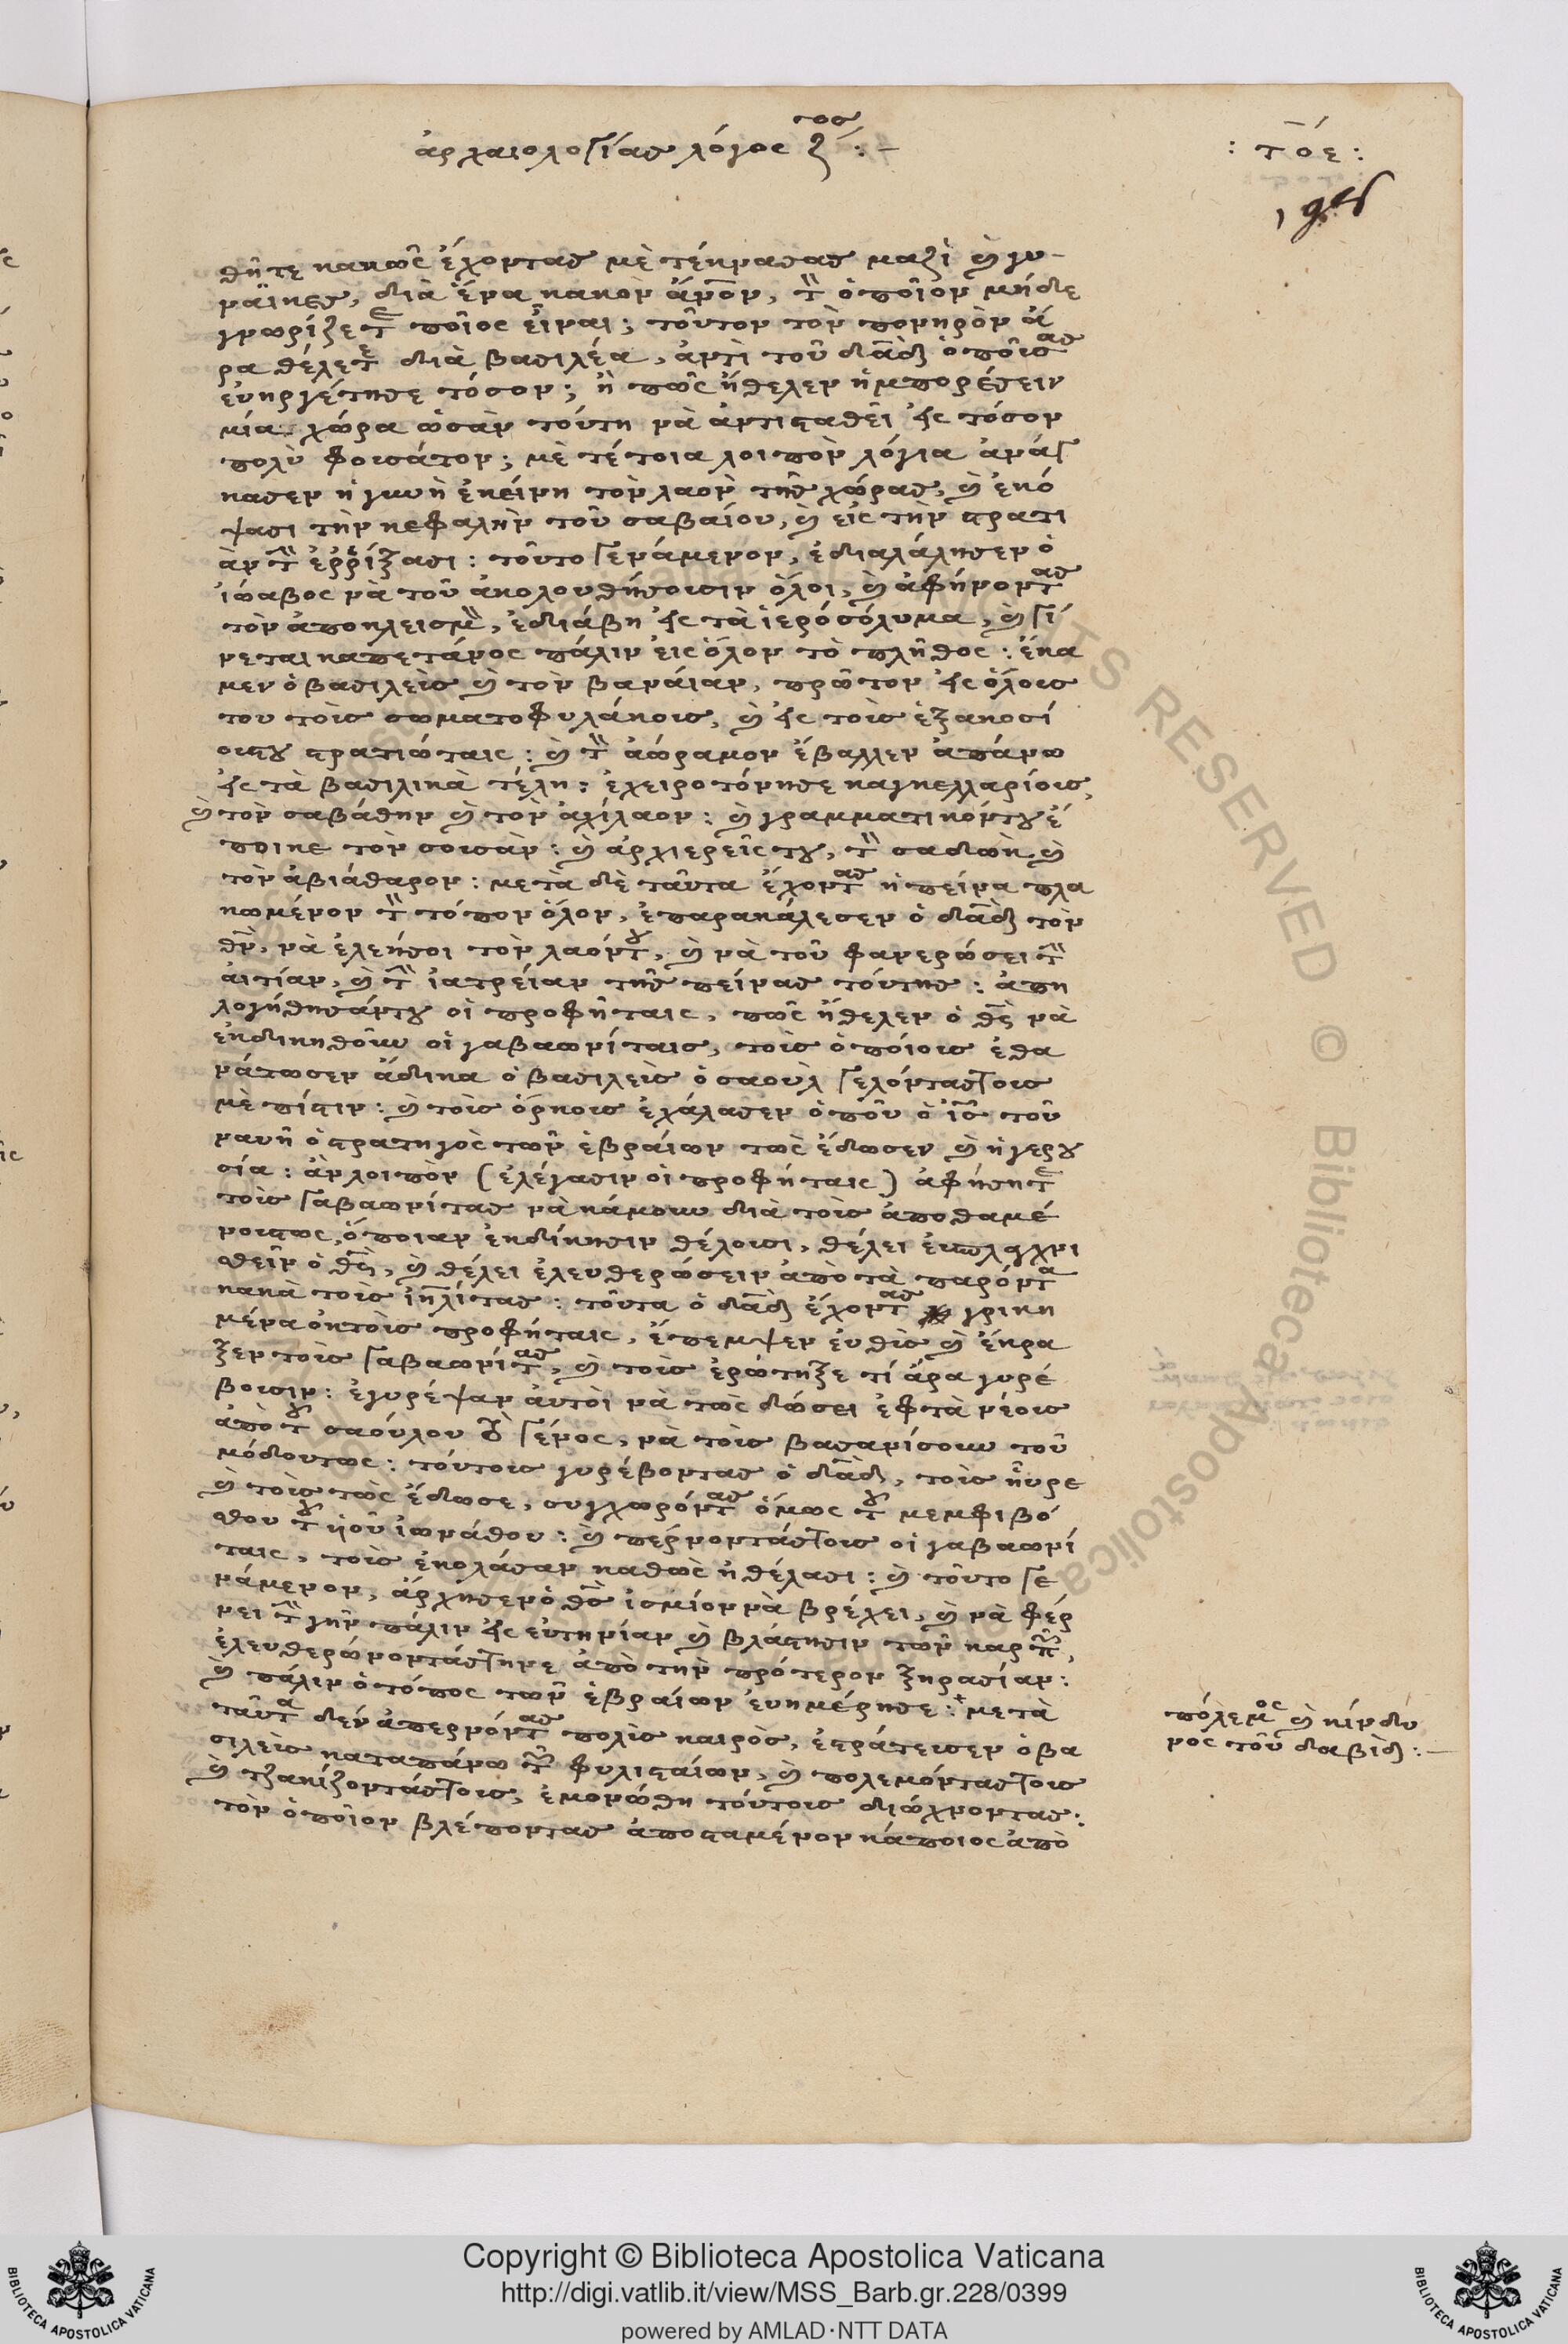 ἀρχαιολογίας λόγος ζ´ τος :–
: τοε :
θῆτε κακῶς ἔχοντας μὲ τέκνασας μαζὶ ϗ γυ-
ναῖκες, διὰ ἕνα κακὸν ἄνον, τ ὁποῖον μήδε
γνωρίζετε ποῖος εἶναι; τοῦτον τὸν πονηρὸν ἄ
ρα θέλετε διὰ βασιλέα, ἀντὶ τοῦ δαδ ὁποῦ σας
εὐηργέτησε τόσον; ἢ πῶς ἤθελεν ἠμπορέσειν
μία χώρα ὡσὰν τούτη νὰ ἀντισταθεῖ εἰς τόσον
πολὺ φουσάτον; μὲ τέτοια λοιπὸν λόγια ἀνάγ
κασεν ἡ γυνὴ ἐκείνη τὸν λαὸν τῆς χώρας, ϗ ἐκό
ψασι τὴν κεφαλὴν τοῦ σαβαίου, ϗ εἰς τὴν στρατι
ὰν τ ἐρρίξασι: τοῦτο γενάμενον, ἐδιαλάλησεν ὁ
ἰώαβος νὰ τοῦ ἀκολουθήσουσιν ὅλοι, ϗ ἀφήνοντας
τὸν ἀποκλεισμ, ἐδιάβη εἰς τὰ ἱερόσόλυμα, ϗ γί
νεται καπετάνος πάλιν εἰς ὅλον τὸ πλῆθος: ἔκα
μεν ὁ βασιλεὺς ϗ τὸν βανάιαν, πρῶτον εἰς ὅλους
του τοὺς σωματοφυλάκους, ϗ εἰς τοὺς ἑξακοσί
ους του στρατιώταις: ϗ τ ἀώραμον ἔβαλλεν ἀπάνω
εἰς τὰ βασιλικὰ τέλη: ἐχειροτόνησε καγκελλαρίους,
ϗ τὸν σαβάθην ϗ τὸν ἀχίλαον: ϗ γραμματικόν του ἐ
ποικε τὸν σουσὰν: ϗ ἀρχιερεῖς του, τ σαδωκ, ϗ
τὸν ἀβιάθαρον: μετὰ δὲ ταῦτα ἔχοντας ἡ πείνα πλα
κωμένον τ τόπον ὅλον, ἐπαρακάλεσεν ὁ δαδ τὸν
θν, νὰ ἐλεήσοι τὸν λαόν του, ϗ νὰ τοῦ φανερώσει τ
αἰτίαν, ϗ τ ἰατρείαν τῆς πείνας τούτης: ἀπη
λογήθησάν του οἱ προφῆταις, πῶς ἤθελεν ὁ θς νὰ
ἐκδικηθοῦν οἱ γαβαωνίταις, τοὺς ὁποίους ἐθα
νάτωσεν ἄδικα ὁ βασιλεὺς ὁ σαοὺλ γελόντας τους
μὲ πίστιν: ϗ τοὺς ὅρκους ἐχάλασεν ὁποῦ ὁ ις τοῦ
ναυῆ ὁ στρατηγὸς τῶν ἑβραίων τῶς ἔδωσεν ϗ ἡ γερου
σία: ἂν λοιπὸν (ἐλέγασιν οἱ προφήταις) ἀφήσητε
τοὺς γαβαωνίτας νὰ κάμουν διὰ τοὺς ἀποθαμέ
νους τως, ὅποιαν ἐκδίκησιν θέλουσι, θέλει εὐσπλαγχνι
σθεῖν ὁ θς, ϗ θέλει ἐλευθερώσειν ἀπὸ τὰ παρόντα
κακὰ τοὺς ιηλίτας: τοῦτα ὁ δαδ ἔχοντας γρικη
μένα ἐκ τοὺς προφήταις, ἔπεμψεν εὐθὺς ϗ ἔκρα
ξεν τοὺς γαβαωνίτας, ϗ τοὺς ἐρώτηξε τί ἄρα γυρέ
βουσιν: ἐγυρέψαν αὐτοὶ νὰ τῶς δώσει ἑφτὰ νέους
ἀπὸ του σαούλου τὸ γένος, νὰ τοὺς βασανίσουν τοῦ
μόδου τως: τούτους γυρέβοντας ὁ δαδ, τοὺς ηὗρε
ϗ τοὺς τῶς ἔδωσε, συγχωρόντας ὅμως του μεμφιβό
σθου του υἱοῦ ἰωνάθου: ϗ πέρνοντάς τους οἱ γαβαωνί
ταις, τοὺς ἐκολάσαν καθῶς ἠθέλασι: ϗ τοῦτο γε
νάμενον, ἄρχησεν ὁ θς ἰσμίον νὰ βρέχει, ϗ νὰ φέρ
νει τ γῆν πάλιν εἰς εὐτηνίαν ϗ βλάστησιν τῶν καρπ,
ἐλευθερώνοντάς τηνε ἀπὸ τὴν πρότερον ξηρασίαν:
ϗ πάλιν ὁ τόπος τῶν ἑβραίων εὐημέρησε: + μετὰ
ταῦτα δὲν ἀπερνόντας πολὺς καιρὸς, ἐστράτευσεν ὁ βα
σιλεὺς καταπάνω τ φυλισταίων, ϗ πολεμόντας τους
ϗ τζακίζοντάς τους, ἐμονώθη τούτους διώχνοντας:
τὸν ὁποῖον βλέποντας ἀποσταμένον κάποιος ἀπὸ
πόλεμος ϗ κίνδυ
νος τοῦ δαβὶδ :–
Copyright © Biblioteca Apostolica Vaticana
http://digi.vatlib.it/view/MSS_Barb.gr.228/0399
powered by AMLAD·NTT DATA